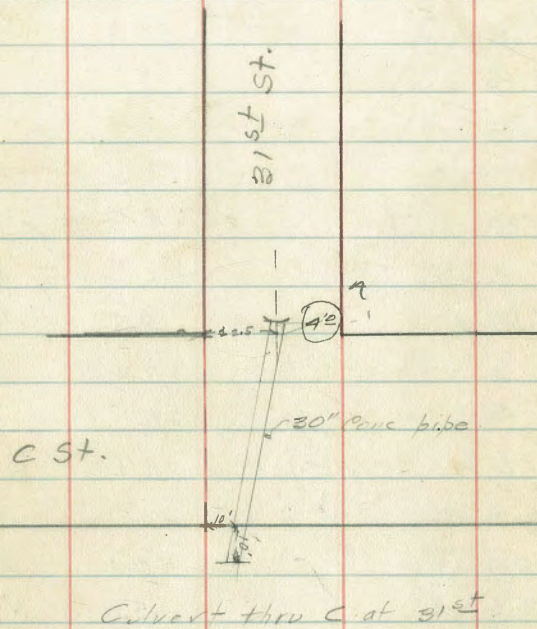 31st St.
4'0
30" Conc pipe
C St.
10'
10'
Culvert thru C at 31st